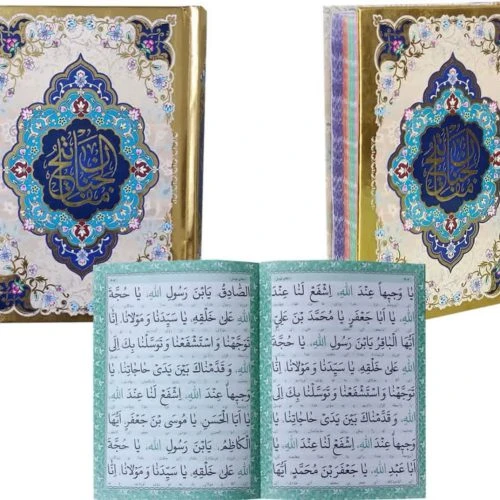 مفاتیح الجنان
مفاتیح الجنان
يا وَجيهاً عِنْدَ اللّٰهِ، اِشْفَعْ لَنا عِنْدَ
اللّٰهِ، يا اَبا جَعْفَرٍ، يا مُحَمَّدَ بْنَ عَلِيٍّ
اَيُّهَا الْباقِرُ، يَابْنَ رَسُولِ اللّٰهِ، يا حُجَّةَ
اللّٰهِ عَلىٰ خَلْقِهِ، يا سَيِّدَنا وَ مَوْلانا، اِنّا
تَوَجَّهْنا وَ اسْتَشْفَعْنا وَ تَوَسَّلْنا بِكَ اِلَى
اللّٰهِ، وَ قَدَّمْناكَ بَيْنَ يَدَىْ حاجاتِنا، يا
وَجيهاً عِنْدَ اللّٰهِ، اِشْفَعْ لَنا عِنْدَ اللّٰهِ، يا
اَبا عَبْدِ اللّٰهِ، يا جَعْفَرَ بْنَ مُحَمَّدٍ، اَيُّهَا
الصّادِقُ، يَابْنَ رَسُولِ اللّٰهِ، يا حُجَّةَ
اللّٰهِ عَلىٰ خَلْقِهِ، يا سَيِّدَنا وَ مَوْلانا، اِنّا
تَوَجَّهْنا وَ اسْتَشْفَعْنا وَ تَوَسَّلْنا بِكَ اِلَى
اللّٰهِ، وَ قَدَّمْناكَ بَيْنَ يَدَىْ حاجاتِنا، يا
وَجيهاً عِنْدَ اللّٰهِ، اِشْفَعْ لَنا عِنْدَ اللّٰهِ، يا
اَبَا الْحَسَنِ، يا مُوسَى بْنَ جَعْفَرٍ، اَيُّهَا
الْكاظِمُ، يَابْنَ رَسُولِ اللّٰهِ، يا حُجَّةَ
اللّٰهِ عَلىٰ خَلْقِهِ، يا سَيِّدَنا وَ مَوْلانا، اِنّا